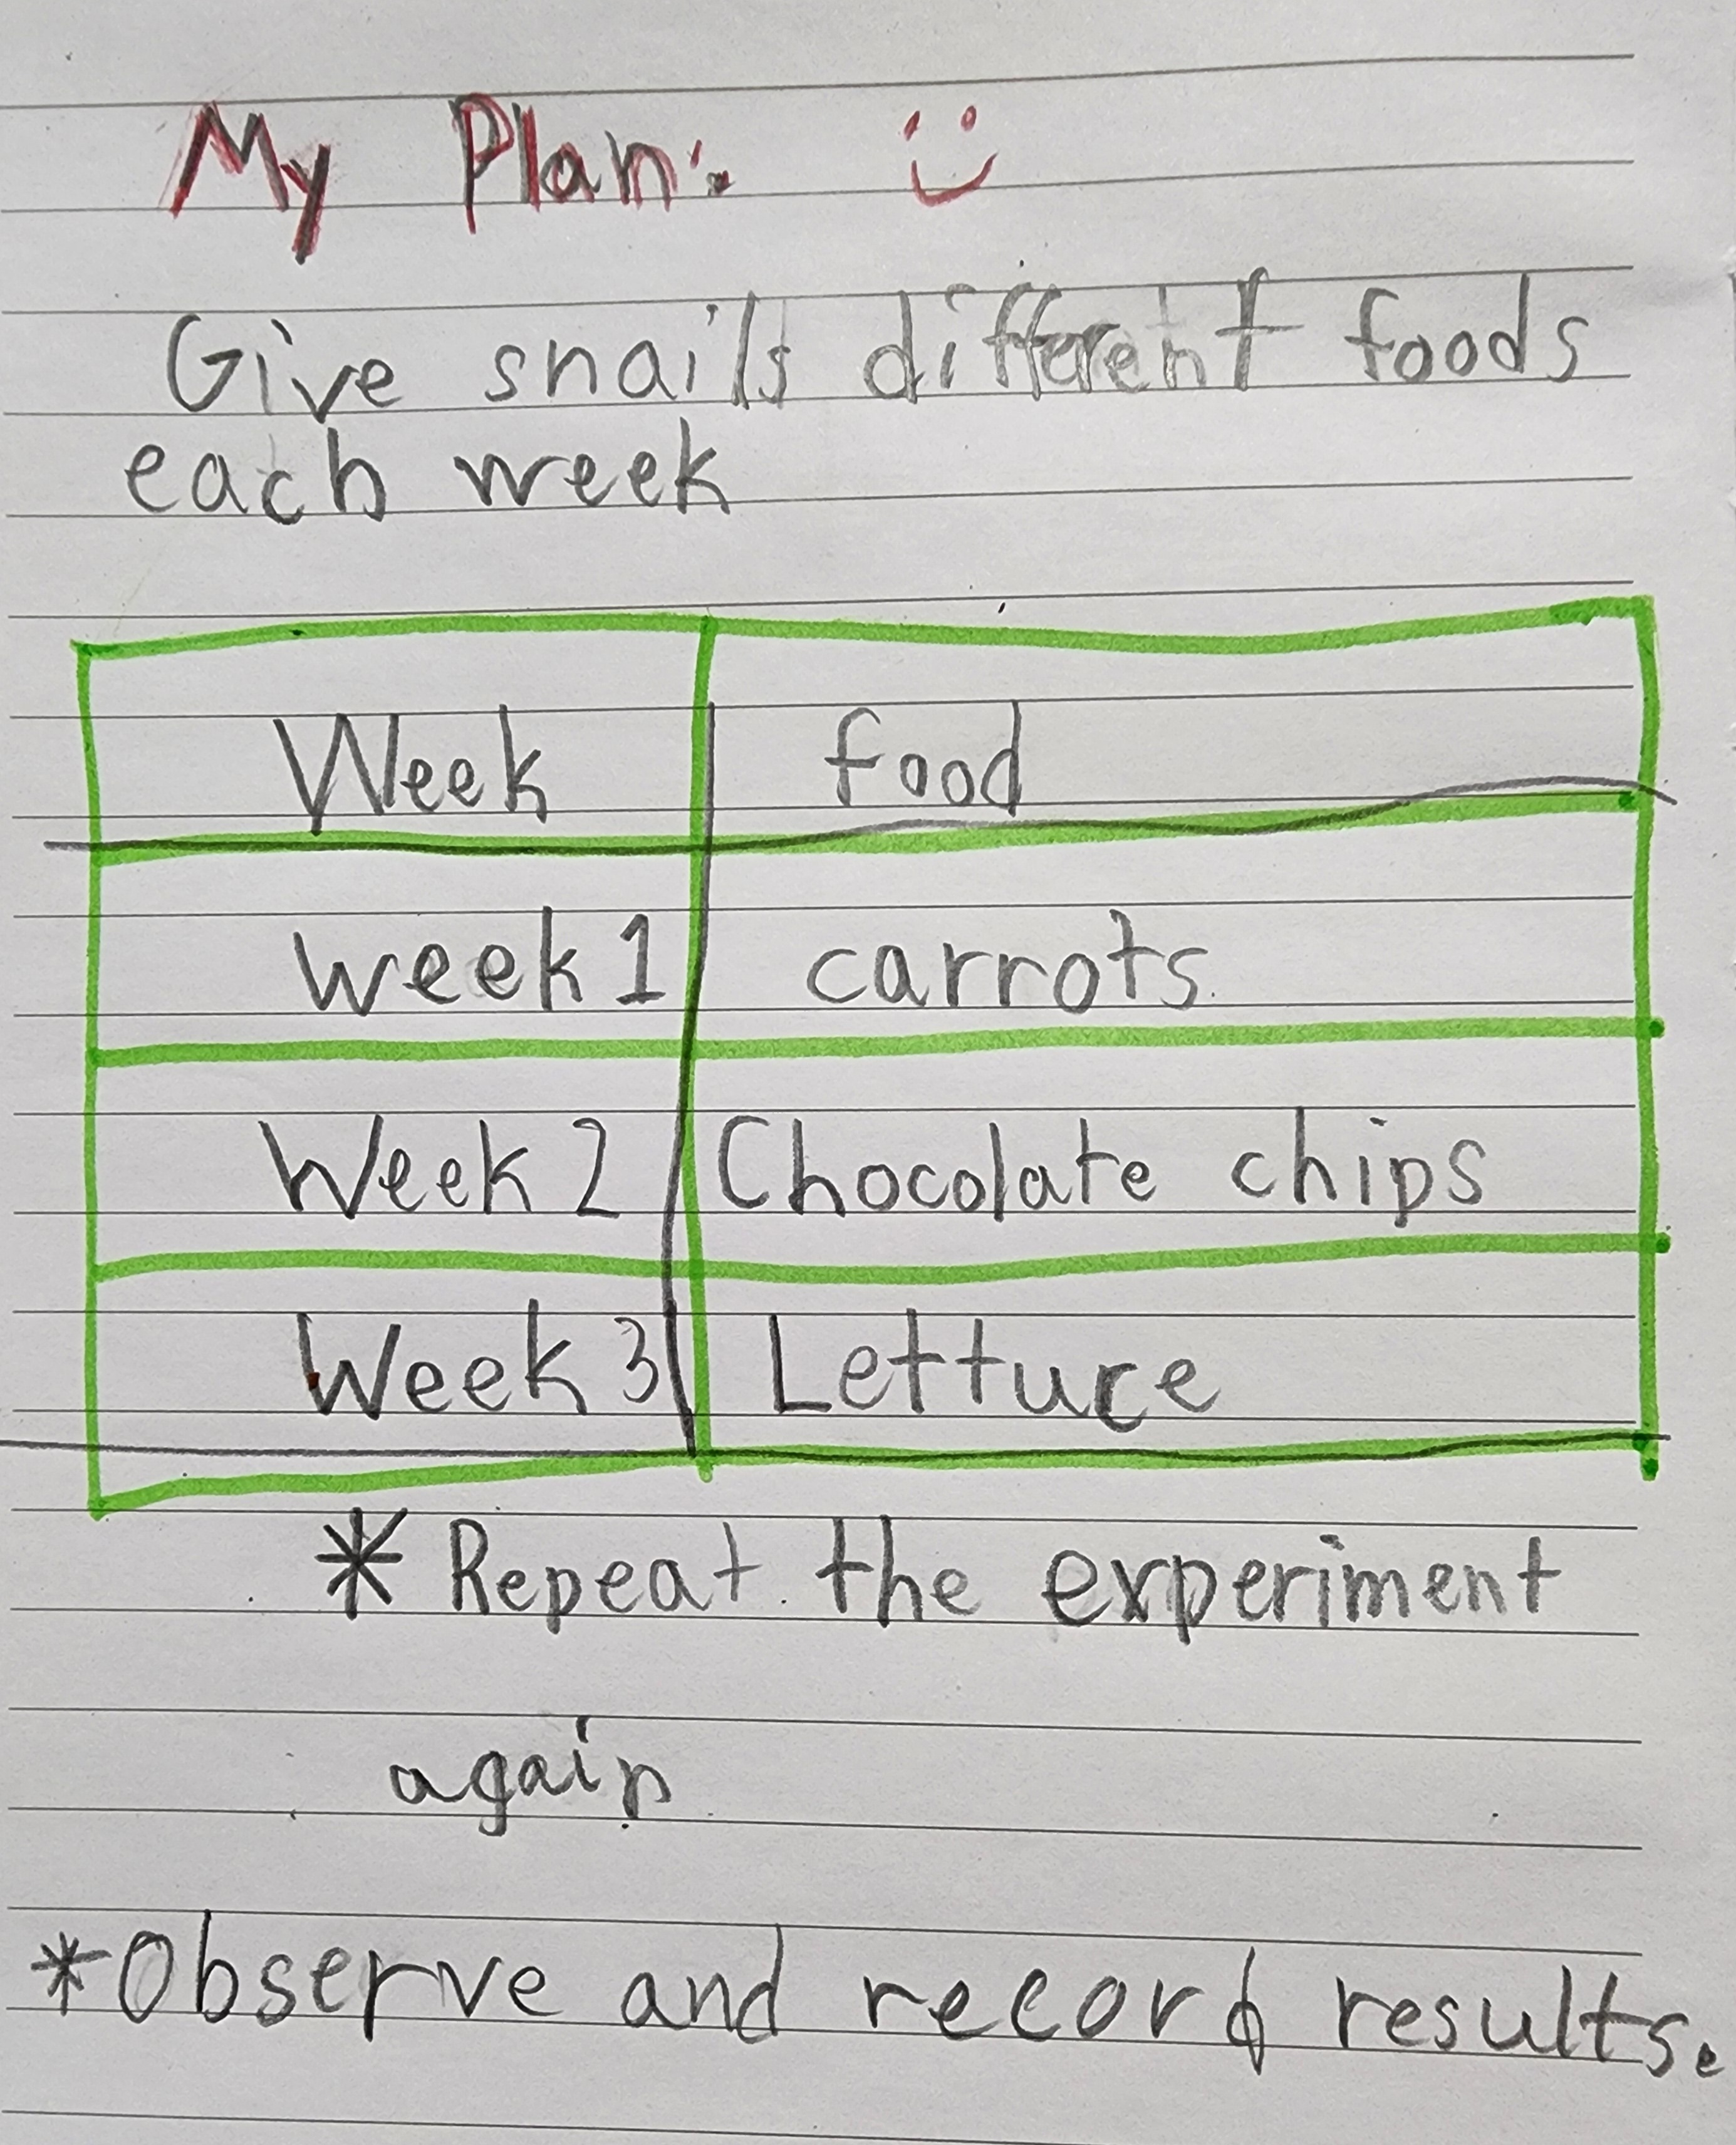 My Plan: :)
Give snails different foods
each week
Week food
week 1 carrots
Week 2 Chocolate chips
Week 3 Lettuce
* Repeat the experiment
again
* Observe and record results.